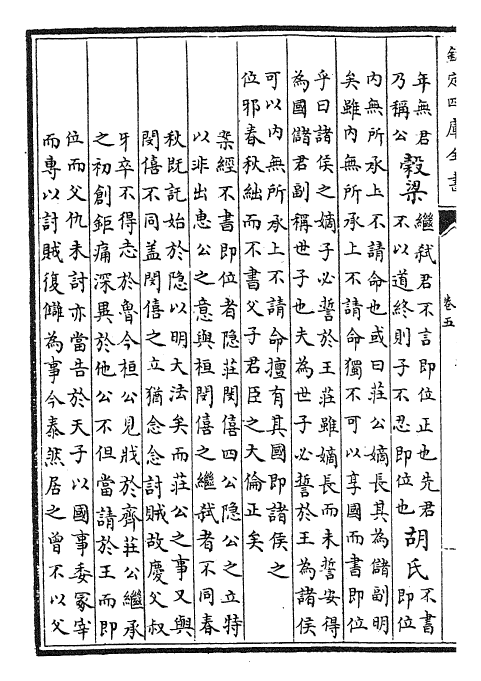 欽定四庫全書
卷五
年無君
乃稱公
穀梁
繼弑君不言即位正也先君
不以道終則子不忍即位也
胡氏
不書
即位
內無所承上不請命也或曰莊公嫡長其為儲副明
矣雖內無所承上不請命獨不可以享國而書即位
乎曰諸侯之嫡子必誓於王莊雖嫡長而未誓安得
為國儲君副稱世子也夫為世子必誓於王為諸侯
可以內無所承上不請命擅有其國即諸侯之
位邪春秋絀而不書父子君臣之大倫正矣
案經不書即位者隱莊閔僖四公隱公之立特
以非出惠公之意與桓閔僖之繼弑者不同春
秋既託始於隱以明大法矣而莊公之事又與
閔僖不同盖閔僖之立猶念念討賊故慶父叔
牙卒不得志於魯今桓公見戕於齊莊公繼承
之初創鉅痛深異於他公不但當請於王而即
位而父仇未討亦當告於天子以國事委冢宰
而專以討賊復讎為事今泰然居之曾不以父